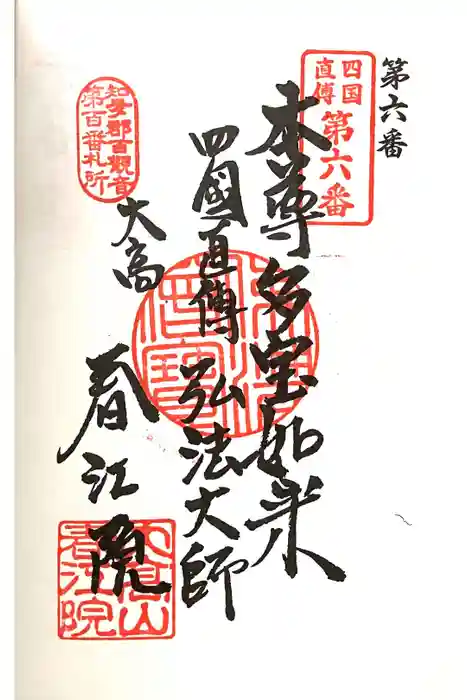 第六番
四国
直傳
第六番
本尊多宝如来
四國直傳弘法大師
知多郡百觀音
第百番札所
大高
春江院
大高山
春江院